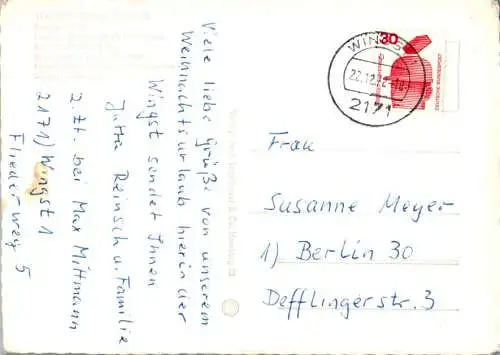 Viele liebe Grüße von unserem
Weihnachtsurlaub hier in der
Wingst sendet Ihnen
Jutta Reinsch u. Familie
z. Zt. bei Max Mittmann
2171) Wingst 1
Fliederweg 5
30
DEUTSCHE BUNDESPOST
WINGST
22.12.72
2171
Frau
Susanne Meyer
1) Berlin 30
Defflingerstr. 3